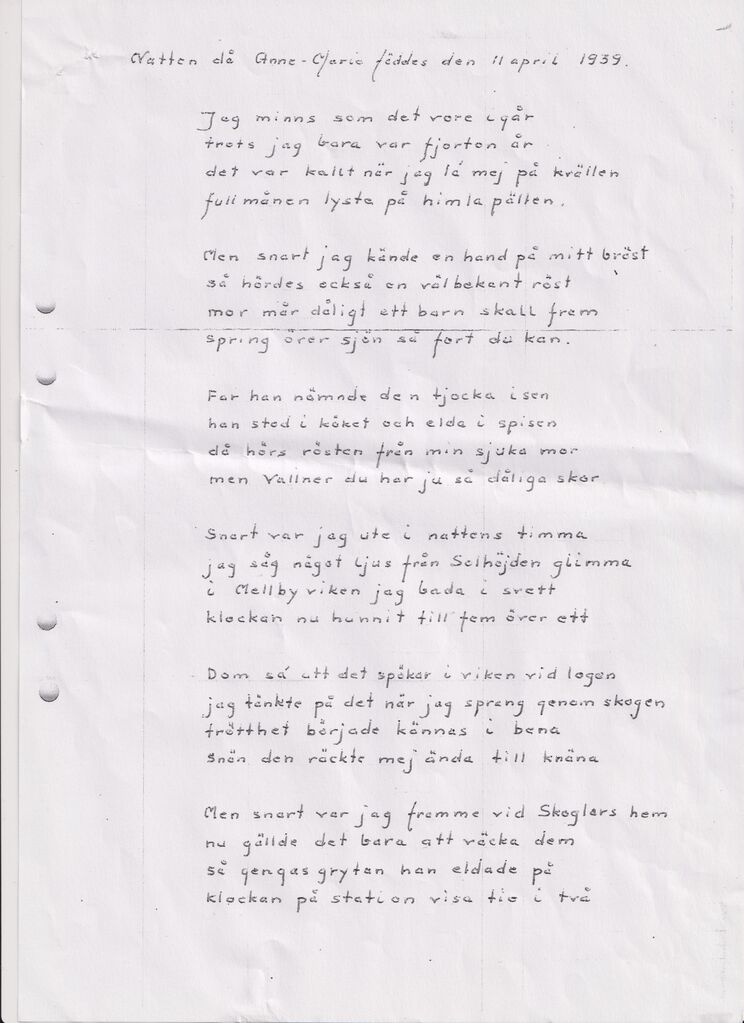 Natten då Anne-Marie föddes den 11 april 1939.
Jag minns som det vore igår
trots jag bara var fjorton år
det var kallt när jag lá mej på kvällen
fullmånen lyste på himlapällen.
Men snart jag kände en hand på mitt bröst
så hördes också en välbekant röst
mor mår dåligt ett barn skall fram
spring över sjön så fort du kan.
Far han nämnde den tjocka isen
han stod i köket och elda i spisen
då hörs rösten från min sjuka mor
men Vallner du har ju så dåliga skor
Snart var jag ute i nattens timma
jag såg något ljus från Solhöjden glimma
i Mellbyviken jag bada i svett
klockan nu hunnit till fem över ett
Dom sa att det spökar i viken vid logen
jag tänkte på det när jag sprang genom skogen
trötthet började kännas i bena
Snön den räckte mej ända till knäna
Men snart var jag framme vid Skoglars hem
nu gällde det bara att väcka dem
så gengasgrytan han eldade på
klockan på station visa tio i två